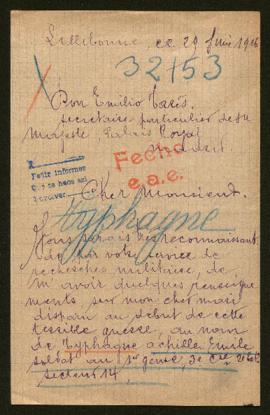 Lillebonne, ce 29 Juin 1916
32153
Don Emilio
secrétaire particulier de sa
Majesté, Palais Royal
Madrid.
Fecha
e.a.e.
Pedir informes
Cher Monsieur.
Typhagne
Je vous serais très reconnaissant
de par votre service de
recherches militaire, de
m'avoir quelques renseigne
ments, sur mon cher mari
disparu au début de cette
terrible guerre, au nom
de Typhagne achille Emile
soldat au 1er génie, 3e Cie
secteur 14